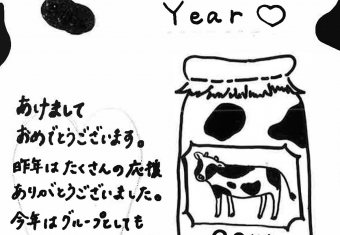 Year ♡
あけまして
おめでとうございます。
昨年はたくさんの応援
ありがとうございました。
今年はグループとしても